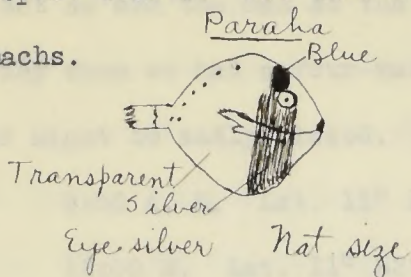 achs.
Paraha
Blue
Transparent
Silver
Eye silver Nat size